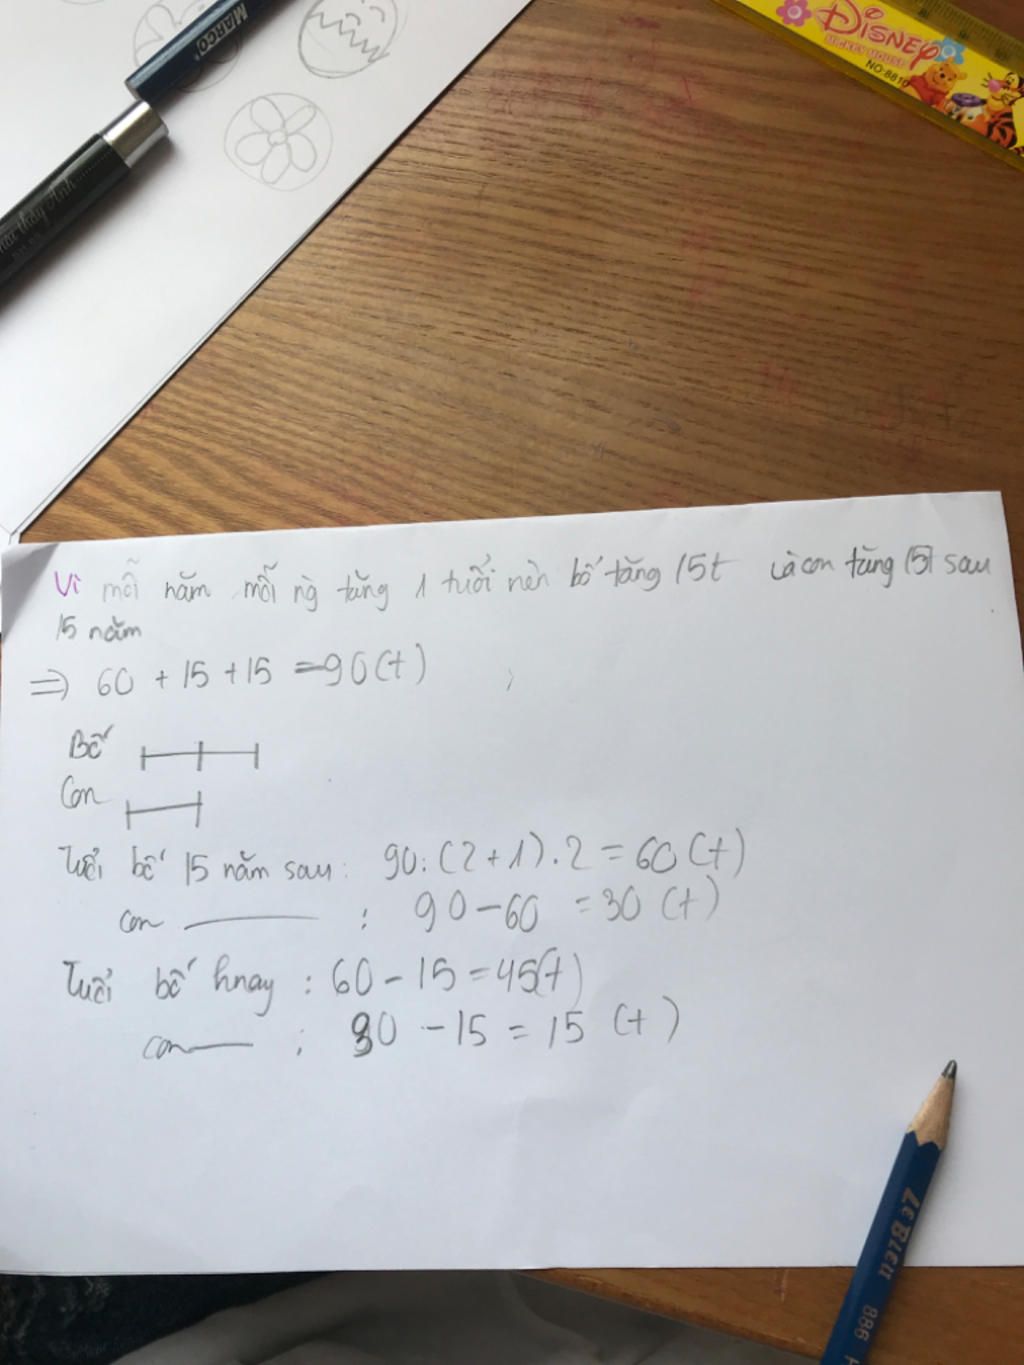 MARCO
Disney
MICKEY MOUSE
NO:8810
Vì mỗi năm mỗi ng̀ tăng 1 tuổi nên bố tăng 15t và con tăng 15t sau
15 năm
⇒ 60 + 15 + 15 = 90(t)
Bố
Con
Tuổi bố 15 năm sau: 90:(2+1).2 = 60(t)
con ——— : 90 - 60 = 30 (t)
Tuổi bố hnay : 60 - 15 = 45(t)
con —— : 30 - 15 = 15 (t)
LeBleu
886